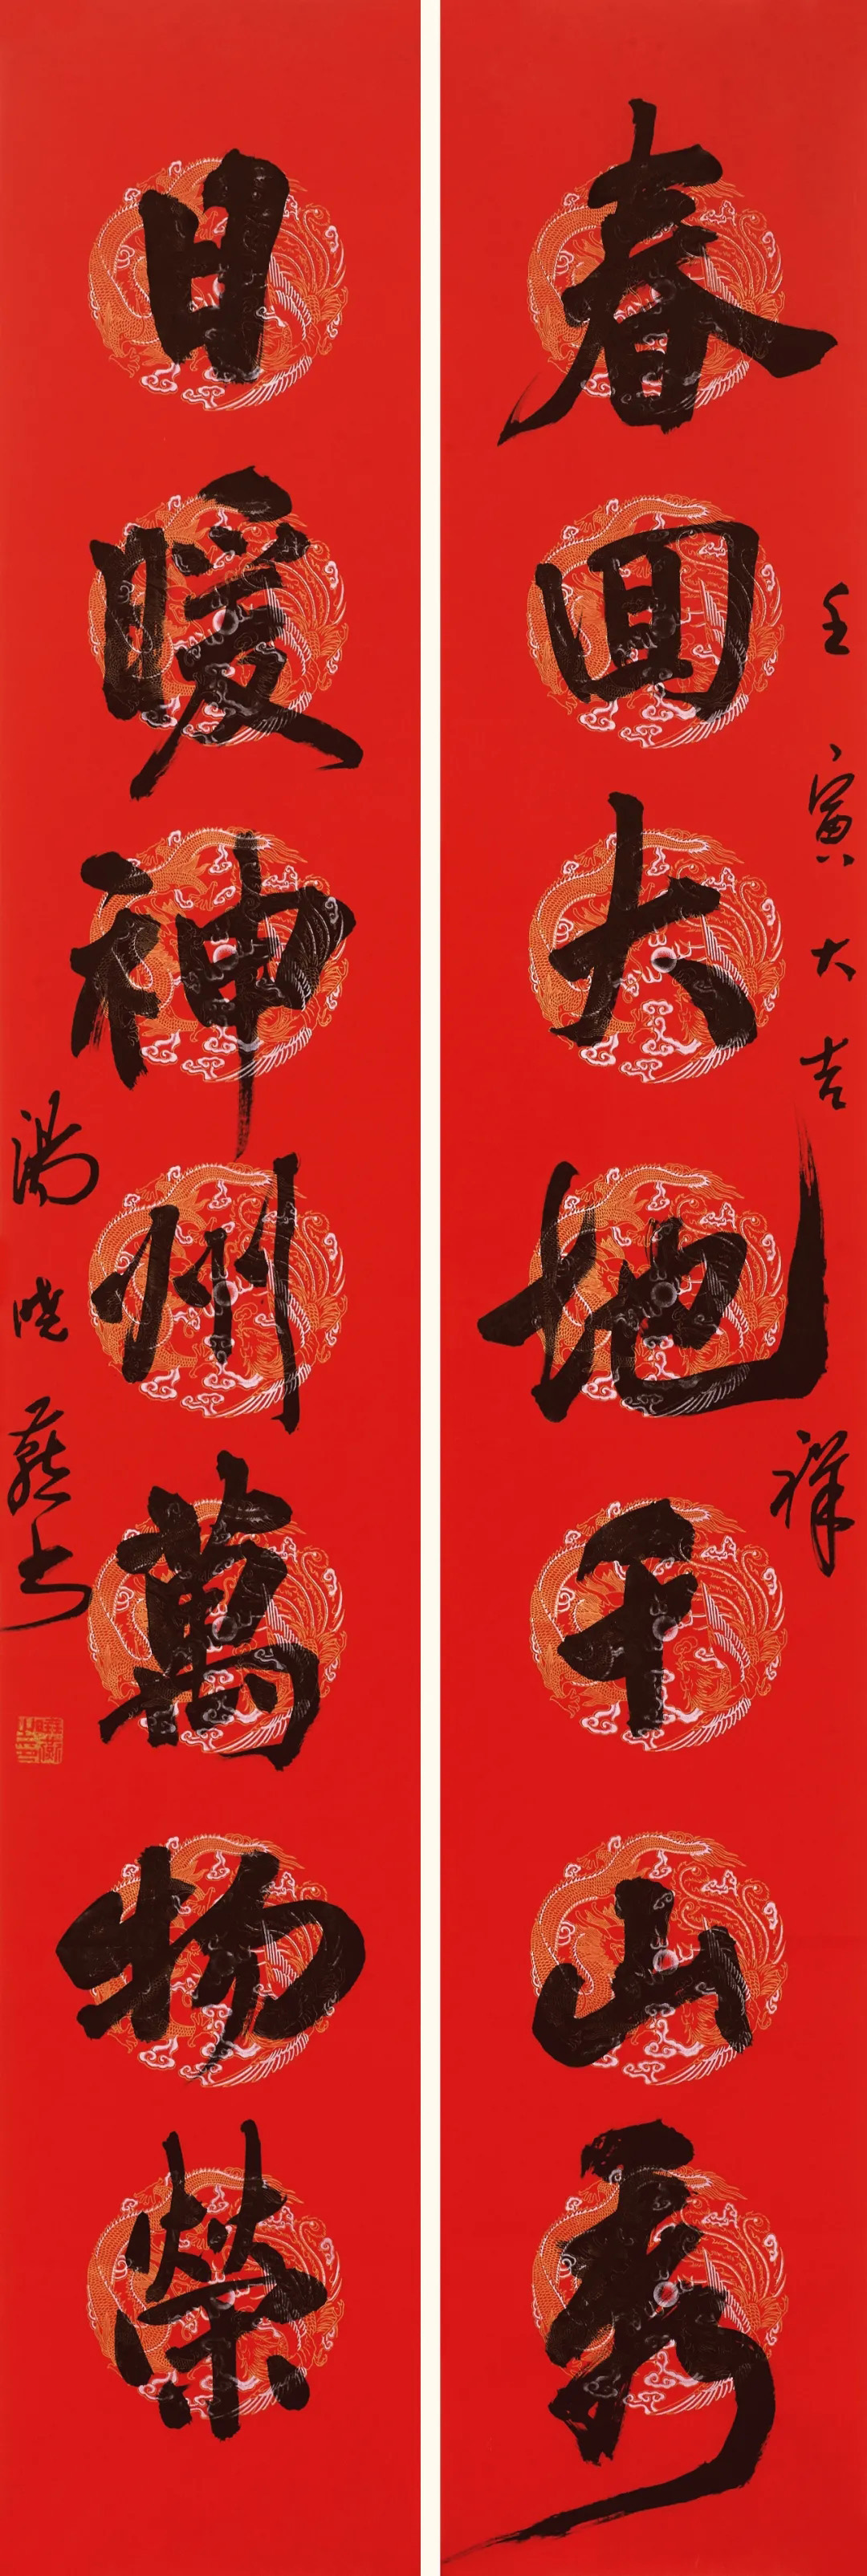 春回大地千山秀
壬寅大吉祥
日暖神州萬物榮
湯曉燕书